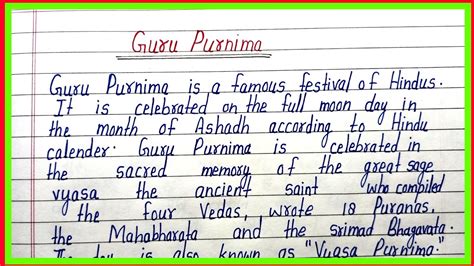 Guru Purnima
Guru Purnima is a famous festival of Hindus.
It is celebrated on the full moon day in
the month of Ashadh according to Hindu
calender. Guru Purnima is celebrated in
the sacred memory of the great sage
vyasa the ancient saint who compiled
the four Vedas, wrote 18 Puranas,
the Mahabharata and the srimad Bhagavata.
The day is also known as "Vyasa Purnima."